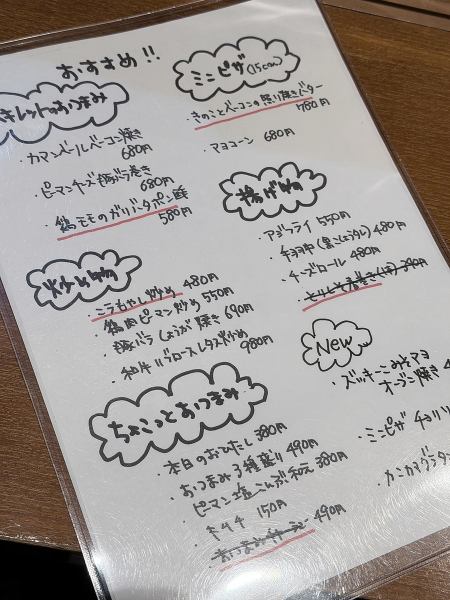 おすすめ!!
きレットのおつまみ
・カマンベールベーコン焼き
680円
・ピーマンチーズ豚バラ巻き
680円
・鶏モモのガリバタポン酢
580円
炒め物
・ニラもやし炒め 480円
・鶏肉ピーマン炒め 550円
・豚バラしょうが焼き 690円
・和牛バラロースレタス炒め 980円
ちょこっとおつまみ
・本日のおひたし 380円
・おつまみ3種盛り 490円
・ピーマン塩こんぶ和え 380円
・キムチ 150円
490円
ミニピザ(15cm)
・きのことベーコンの照り焼きバター
780円
・マヨコーン 680円
揚げ物
・アジフライ 550円
480円
・チーズロール 480円
390円
New
・ズッキーニみそマヨ
オーブン焼き 4
・ミニピザ チョリソ
・カニカマグラタン